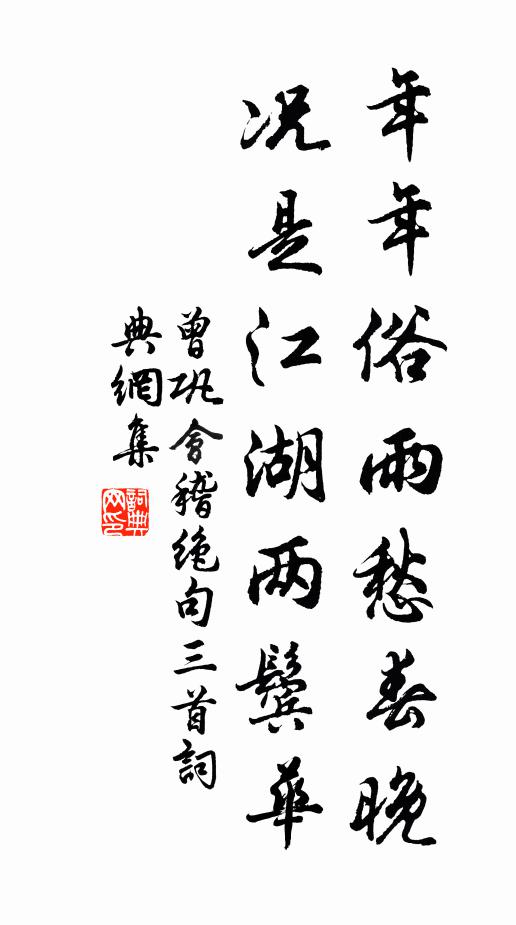 年年俗雨愁春晚
况是江湖两鬓华
曾巩會稽绝句三首詞
典網集
詞典网印